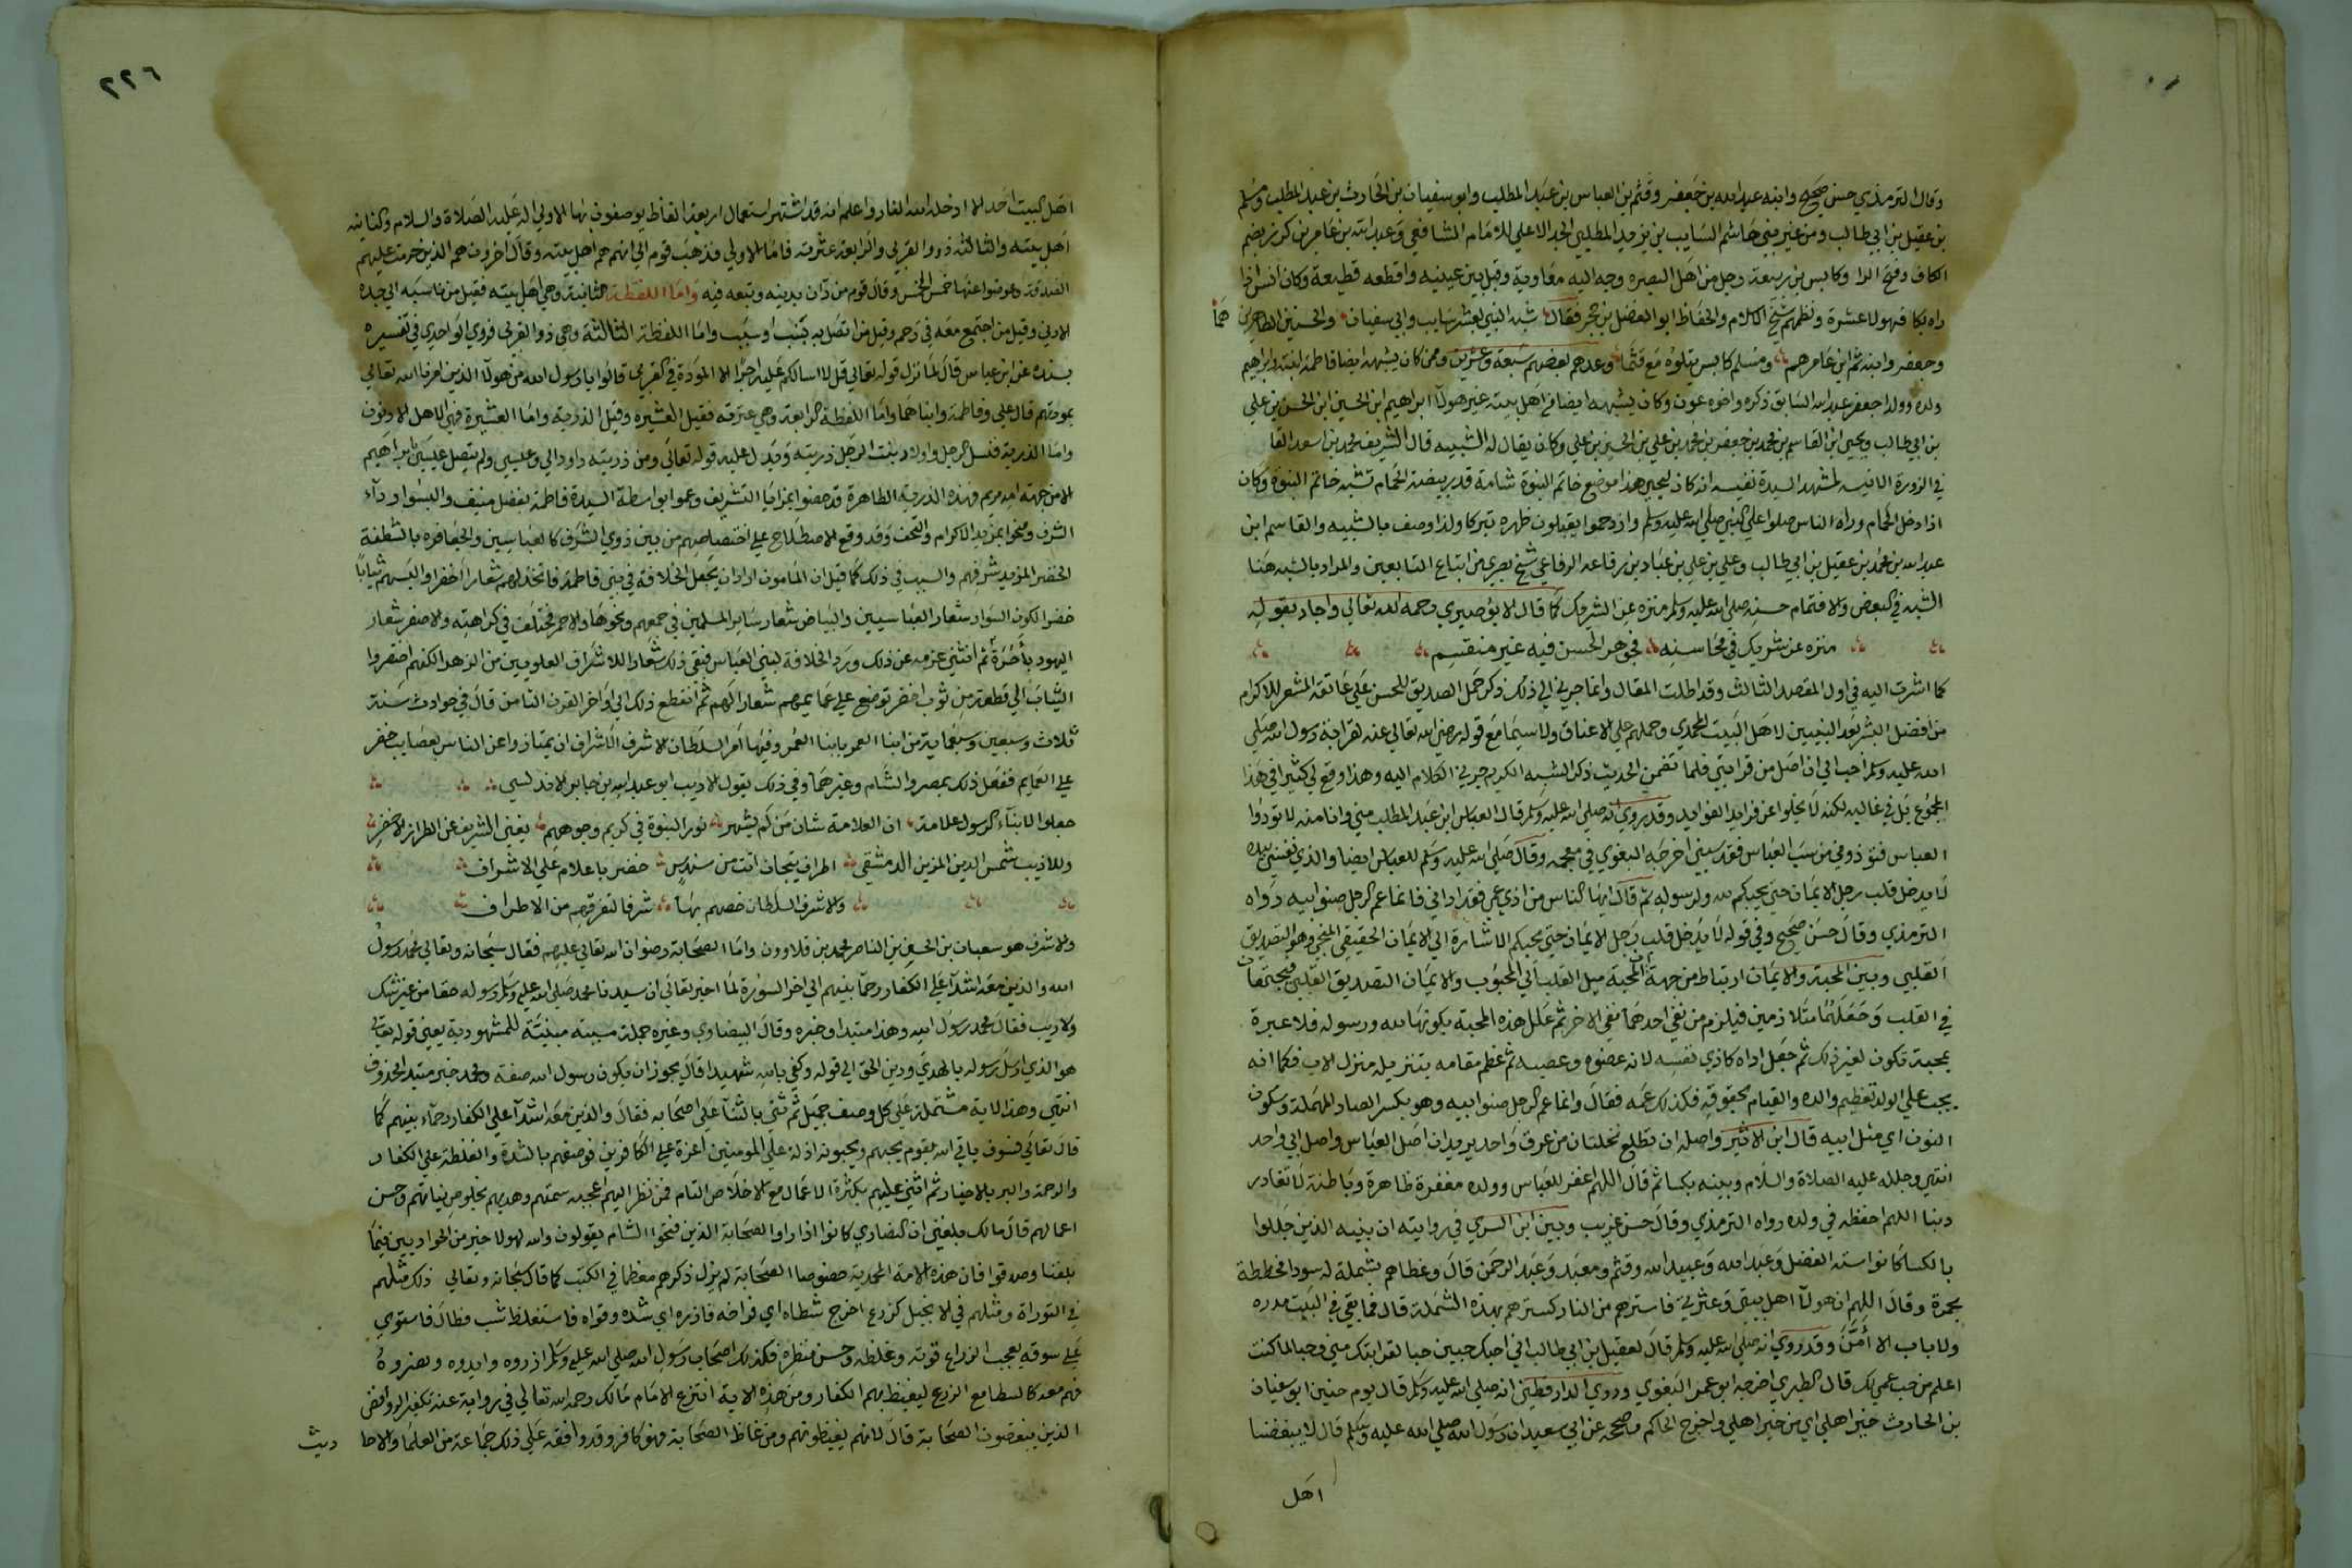 وقال الترمذي حسن صحيح وابنه عبد الله بن جعفر وقثم بن العباس بن عبد المطلب وابو سفيان بن الحارث بن عبد المطلب ومسلم
بن عقيل بن ابي طالب ومن غير بني هاشم السايب بن يزيد المطلبي الجد الاعلى للامام الشافعي وعبد الله بن عامر بن كريز بضم
الكاف وفتح الرا وكابس بن ربيعة رجل من اهل البصره وجه اليه معاوية وقبل بين عينيه واقطعه قطيعة وكان انس اذا
راه بكا فهولا عشرة ونظمهم شيخ الاسلام والحفاظ ابو الفضل بن حجر فقال شبه النبي لعشر سايب وابي سفيان والحسنين الطاهرين هما
وجعفر وابنه ثم ابن عامرهم ومسلم كابس يتلوه مع قثما وعدهم بعضهم سبعة وعشرين وممن كان يشبهه ايضا فاطمة ابنته وابراهيم
ولده وولدا جعفر عبد الله السابق ذكره واخوه عون وكان يشبهه ايضا من اهل بيته غير هولآ ابراهيم ابن الحسن ابن الحسن بن علي
بن ابي طالب ويحيى ابن القاسم بن محمد بن جعفر بن محمد بن علي بن الحسين بن علي وكان يقال له الشبيه قال الشريف محمد بن اسعد النقا
في الزورة الانيسه لمشهد السيدة نفيسه انه كان ليحيى هذا موضع خاتم النبوة شامة قدر بيضة الحمام تشبه خاتم النبوة وكان
اذا دخل الحمام وراه الناس صلوا على النبي صلى الله عليه وسلم وازدحموا يقبلون ظهره تبركا ولذا وصف بالشبيه والقاسم ابن
عبد الله بن محمد بن عقيل بن ابي طالب وعلي بن علي بن عباد بن رفاعه الرفاعي شيخ بصري من اتباع التابعين والمراد بالشبه هنا
الشبه في البعض والا فتمام حسنه صلى الله عليه وسلم منزه عن الشريك كما قال الابوصيري رحمه الله تعالى واجاد بقوله
منزه عن شريك في محاسنه فجوهر الحسن فيه غير منقسم
كما اشرت اليه في اول المقصد الثالث وقد اطلت المقال وانما جرني الى ذلك ذكر حمل الصديق للحسن على عاتقه المشعر للاكرام
من افضل البشر بعد النبيين لاهل البيت المحمدي وحملهم على الاعناق ولا سيما مع قوله رضي الله تعالى عنه لقرابة رسول الله صلى
الله عليه وسلم احب الي ان اصل من قرابتي فلما تضمن الحديث ذكر الشبه الكريم جرني الكلام اليه وهذا وقع لي كثيرا في هذا
المجموع بل في غالبه لكنه لا يخلوا عن فرايد الفوايد وقد روي انه صلى الله عليه وسلم قال العباس ابن عبد المطلب مني وانا منه لا تؤذوا
العباس فتؤذوني من سب العباس فقد سبني اخرجه البغوي في معجمه وقال صلى الله عليه وسلم للعباس ايضا والذي نفسي بيده
لا يدخل قلب رجل الايمان حتى يحبكم لله ولرسوله ثم قال ايها الناس من اذى عمي فقد اذاني فانما عم الرجل صنو ابيه رواه
الترمذي وقال حسن صحيح وفي قوله لا يدخل قلب رجل الايمان حتى يحبكم الاشارة الى الايمان الحقيقي المنجي وهو التصديق
القلبي وبين المحبة والايمان ارتباط من جهة ان المحبة ميل القلب الى المحبوب والايمان التصديق القلبي فيجتمعان
في القلب وجعلهما متلازمين فيلزم من نفي احدهما نفي الاخر ثم علل هذه المحبة بكونها لله ورسوله فلا عبرة
بمحبة تكون لغير ذلك ثم جعل اذاه كاذى نفسه لانه عضوه وعصبه ثم عظم مقامه بتنزيله منزل الاب فكما انه
يجب على الولد تعظيم والده والقيام بحقوقه فكذلك عمه فقال وانما عم الرجل صنو ابيه وهو بكسر الصاد المهملة وسكون
النون اي مثل ابيه قال ابن الاثير واصله ان تطلع نخلتان من عرق واحد يريد ان اصل العباس واصل ابي واحد
انتهى وجلله عليه الصلاة والسلام وبنيه بكسا ثم قال اللهم اغفر للعباس وولده مغفرة ظاهرة وباطنة لا تغادر
ذنبا اللهم احفظه في ولده رواه الترمذي وقال حسن غريب وبين ابن السري في روايته ان بنيه الذين جللوا
بالكسا كانوا ستة الفضل وعبد الله وعبيد الله وقثم ومعبد وعبد الرحمن قال وغطاهم بشملة له سودا مخططة
بحمرة وقال اللهم ان هولآ اهل بيتي وعترتي فاسترهم من النار كسترهم بهذه الشملة قال فما بقي في البيت مدره
ولا باب الا أمّن وقد روي انه صلى الله عليه وسلم قال لعقيل بن ابي طالب اني احبك حبين حبا لقرابتك مني وحبا لما كنت
اعلم من حب عمي لك قال الطبري اخرجه ابو عمر البغوي وروي الدارقطني انه صلى الله عليه وسلم قال يوم حنين ابو سفيان
بن الحارث خير اهلي اي من خير اهلي واخرج الحاكم وصححه عن ابي سعيد ان رسول الله صلى الله عليه وسلم قال لا يبغضنا
اهل
٢٢٦
اهل البيت احد الا ادخله الله النار واعلم انه قد اشتهر استعمال اربعة الفاظ يوصفون بها الاولى اله عليه الصلاة والسلام والثانية
اهل بيته والثالثة ذوو القربى والرابعة عترته فاما الاولى فذهب قوم الى انهم هم اهل بيته وقال اخرون هم الذين حرمت عليهم
الصدقة وعوضوا عنها خمس الخمس وقال قوم من دان بدينه وتبعه فيه واما اللفظة الثانية وهي اهل بيته فقيل من ناسبه الى جده
الادنى وقيل من اجتمع معه في رحم وقيل من اتصل به بنسب او سبب واما اللفظة الثالثة وهي ذوا القربى فروي الواحدي في تفسيره
بسنده عن ابن عباس قال لما نزل قوله تعالى قل لا اسالكم عليه اجرا الا المودة في القربى قالوا يا رسول الله من هولآ الذين امرنا الله تعالى
بمودتهم قال علي وفاطمة وابناهما واما اللفظة الرابعة وهي عترته فقيل العشيره وقيل الذرية واما العشيرة فهي الاهل الادنون
واما الذرية فنسل الرجل واولاد بنت الرجل ذريته ويدل عليه قوله تعالى ومن ذريته داود الى وعيسى ولم يتصل عيسى بابراهيم
الا من جهة امه مريم فهذه الذرية الطاهرة قد خصوا بمزايا التشريف وعموا بواسطة السيدة فاطمة بفضل منيف والبسوا ردآء
الشرف ومنحوا بمزيد الاكرام والتحف وقد وقع الاصطلاح على اختصاصهم من بين ذوي الشرف كالعباسيين والجعافره بالشطفة
الخضرا لمزيد شرفهم والسبب في ذلك كما قيل ان المامون اراد ان يجعل الخلافة في بني فاطمة فاتخذ لهم شعارا اخضر والبسهم ثيابا
خضرا لكون السواد شعار العباسيين والبياض شعار ساير المسلمين في جمعهم ونحوها والاحمر مختلف في كراهته والاصفر شعار
اليهود بأخرة ثم انثنى عزمه عن ذلك ورد الخلافة لبني العباس فبقي ذلك شعار الاشراف العلويين من الزهرا لكنهم اختصروا
الثياب الى قطعة من ثوب اخضر توضع على عمايمهم شعارا لهم ثم انقطع ذلك الى اواخر القرن الثامن قال في حوادث سنة
ثلاث وسبعين وسبعماية من ابنا الغمر بابنا العمر وفيها امر السلطان الاشرف الاشراف ان يمتازوا عن الناس بعصايب خضر
على العمايم ففعل ذلك بمصر والشام وغيرهما وفي ذلك يقول الاديب ابو عبد الله بن جابر الاندلسي
جعلوا لابنآء الرسول علامة ان العلامة شان من لم يشهر نور النبوة في كريم وجوههم يغني الشريف عن الطراز الاخضر
وللاديب شمس الدين المزين الدمشقي اطراف تيجان اتت من سندس خضر باعلام على الاشراف
والاشرف السلطان خصهم بها شرفا لتفرقهم من الاطراف
والاشرف هو سعبان بن الحسين بن الناصر محمد بن قلاوون واما الصحابة رضوان الله تعالى عليهم فقال سبحانه وتعالى محمد رسول
الله والذين معه اشدآ على الكفار رحمآ بينهم الى اخر السورة لما اخبر تعالى ان سيدنا محمد صلى الله عليه وسلم رسوله حقا من غير شك
ولا ريب فقال محمد رسول الله وهذا مبتدا وخبره وقال البيضاوي وغيره جملة مبينة للمشهود به يعني قوله تعالى
هو الذي ارسل رسوله بالهدى ودين الحق الى قوله وكفى بالله شهيدا قال ويجوز ان يكون رسول الله صفة ومحمد خبر مبتدا محذوف
انتهى وهذه الاية مشتملة على كل وصف جميل ثم ثنى بالثنآ على اصحابه فقال والذين معه اشدآ على الكفار رحمآء بينهم كما
قال تعالى فسوف ياتي الله بقوم يحبهم ويحبونه اذلة على المومنين اعزة على الكافرين فوصفهم بالشدة والغلظة على الكفار
والرحمة والبر بالاخيار ثم اثنى عليهم بكثرة الاعمال مع الاخلاص التام فمن نظر اليهم اعجبه سمتهم وهديهم لخلوص نياتهم وحسن
اعمالهم قال مالك بلغني ان النصارى كانوا اذا راوا الصحابة الذين فتحوا الشام يقولون والله لهولا خير من الحواريين فيما
بلغنا وصدقوا فان هذه الامة المحمدية خصوصا الصحابة لم يزل ذكرهم معظما في الكتب كما قال سبحانه وتعالى ذلك مثلهم
في التوراة ومثلهم في الانجيل كزرع اخرج شطاه اي فراخه فازره اي شده وقواه فاستغلظ شب فطال فاستوى
على سوقه يعجب الزراع قوته وغلظه وحسن منظره فكذلك اصحاب رسول الله صلى الله عليه وسلم ازروه وايدوه ونصروه
فهم معه كالشطا مع الزرع ليغيظ بهم الكفار ومن هذه الاية انتزع الامام مالك رحمه الله تعالى في رواية عنه تكفير الروافض
الذين يبغضون الصحابة قال لانهم يغيظونهم ومن غاظ الصحابة فهو كافر وقد وافقه على ذلك جماعة من العلما والاحا
ديث